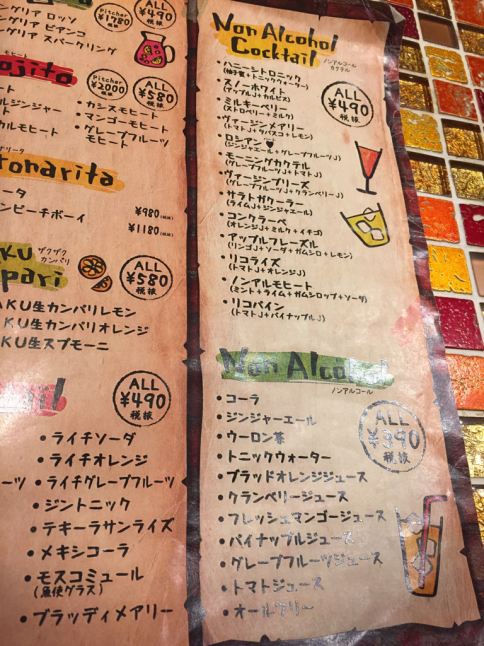 ALL
¥490
税抜
Pitcher
¥1780
税抜
グリア ロッソ
グリア ビアンコ
ングリア スパークリング
ojito
モヒート
Pitcher
¥2000
税抜
ALL
¥580
税抜
ート
ルジンジャー
ート
カルモヒート
・カシスモヒート
・マンゴーモヒート
・グレープフルーツ
モヒート
onarita
リータ
ータ
¥980(税抜)
ンピーチボーイ
¥1180(税抜)
KU
ザクザク
カンパリ
pari
ALL
¥580
税抜
AKU生カンパリレモン
AKU生カンパリオレンジ
KU生スプモーニ
ALL
¥490
税抜
・ライチソーダ
・ライチオレンジ
ーツ
・ライチグレープフルーツ
・ジントニック
・テキーラサンライズ
・メキシコーラ
・モスコミュール
(魚使グラス)
・ブラッディメアリー
Non Alcohol
Cocktail
ノンアルコール
カクテル
ALL
¥490
税抜
・ハニーシトロニック
(柚子蜜+トニックウォーター)
・スノーホワイト
(アップルJ+カルピス)
・ミルキーベリー
(ストロベリー+ミルク)
・ヴァージンメアリー
(トマトJ+タバスコ+レモン)
・ロシアン
(ジンジャエール+グレープフルーツJ)
・モーニングカクテル
(グレープフルーツJ+トマトJ)
・ヴァージンブリーズ
(グレープフルーツJ+クランベリーJ)
・サラトガクーラー
(ライムJ+ジンジャエール)
・コンクラーベ
(オレンジJ+ミルク+イチゴ)
・アップルフレーズル
(リンゴJ+ソーダ+ガムシロ+レモン)
・リコライズ
(トマトJ+オレンジJ)
・ノンアルモヒート
(ミント+ライム+ガムシロップ+ソーダ)
・リコパイン
(トマトJ+パイナップルJ)
Non Alcohol
ノンアルコール
ALL
¥390
税抜
・コーラ
・ジンジャーエール
・ウーロン茶
・トニックウォーター
・ブラッドオレンジジュース
・クランベリージュース
・フレッシュマンゴージュース
・パイナップルジュース
・グレープフルーツジュース
・トマトジュース
・オールフリー